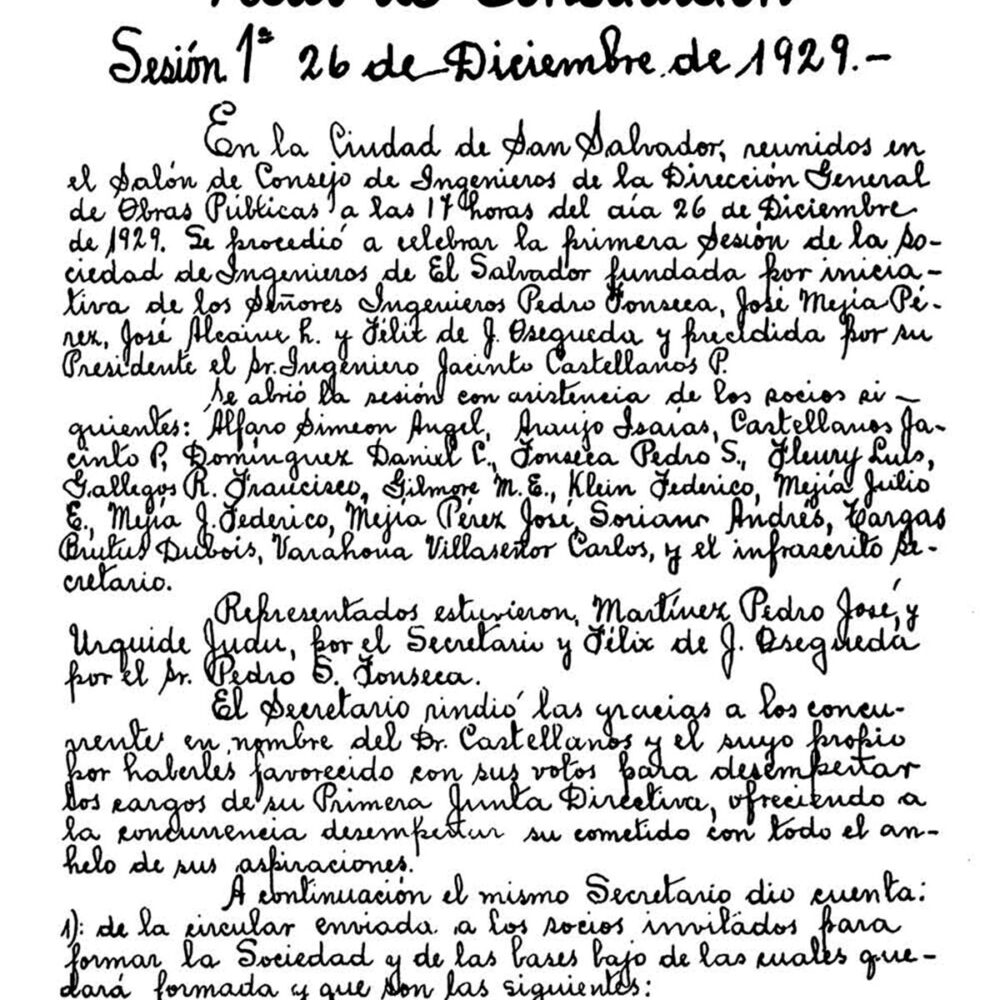 Acta de Constitución
Sesión 1ª 26 de Diciembre de 1929.-
En la Ciudad de San Salvador, reunidos en
el Salón de Consejo de Ingenieros de la Dirección General
de Obras Públicas a las 17 horas del día 26 de Diciembre
de 1929. Se procedió a celebrar la primera Sesión de la So-
ciedad de Ingenieros de El Salvador fundada por inicia-
tiva de los Señores Ingenieros Pedro Fonseca, José Mejía Pé-
rez, José Alcaine h. y Félix de J. Osegueda y precidida por su
Presidente el Sr. Ingeniero Jacinto Castellanos P.
Se abrió la sesión con asistencia de los socios si-
guientes: Alfaro Simeon Angel, Araujo Isaías, Castellanos Ja-
cinto P, Domínguez Daniel C., Fonseca Pedro S., Fleury Luis,
Gallegos R. Francisco, Gilmore M. E., Klein Federico, Mejía Julio
E., Mejía J. Federico, Mejía Pérez José, Soriano Andrés, Vargas
Brutus Dubois, Varahona Villaseñor Carlos, y el infrascrito Se-
cretario.
Representados estuvieron, Martínez Pedro José, y
Urquide Judu, por el Secretario y Félix de J. Osegueda
por el Sr. Pedro S. Fonseca.
El Secretario rindió las gracias a los concu-
rrente en nombre del Dr. Castellanos y el suyo propio
por haberles favorecido con sus votos para desempeñar
los cargos de su Primera Junta Directiva, ofreciendo a
la concurrencia desempeñar su cometido con todo el an-
helo de sus aspiraciones.
A continuación el mismo Secretario dio cuenta:
1): de la circular enviada a los socios invitados para
formar la Sociedad y de las bases bajo de las cuales que-
dará formada y que son las siguientes: